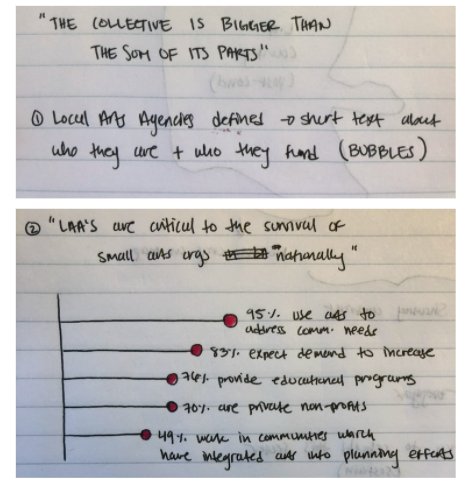 "THE COLLECTIVE IS BIGGER THAN
THE SUM OF ITS PARTS"
① Local Arts Agencies defined → short text about
who they are + who they fund (BUBBLES)
② "LAA'S are critical to the survival of
small arts orgs nationally"
95% use arts to
address comm. needs
83% expect demand to increase
76% provide educational programs
70% are private non-profits
49% work in communities which
have integrated arts into planning efforts